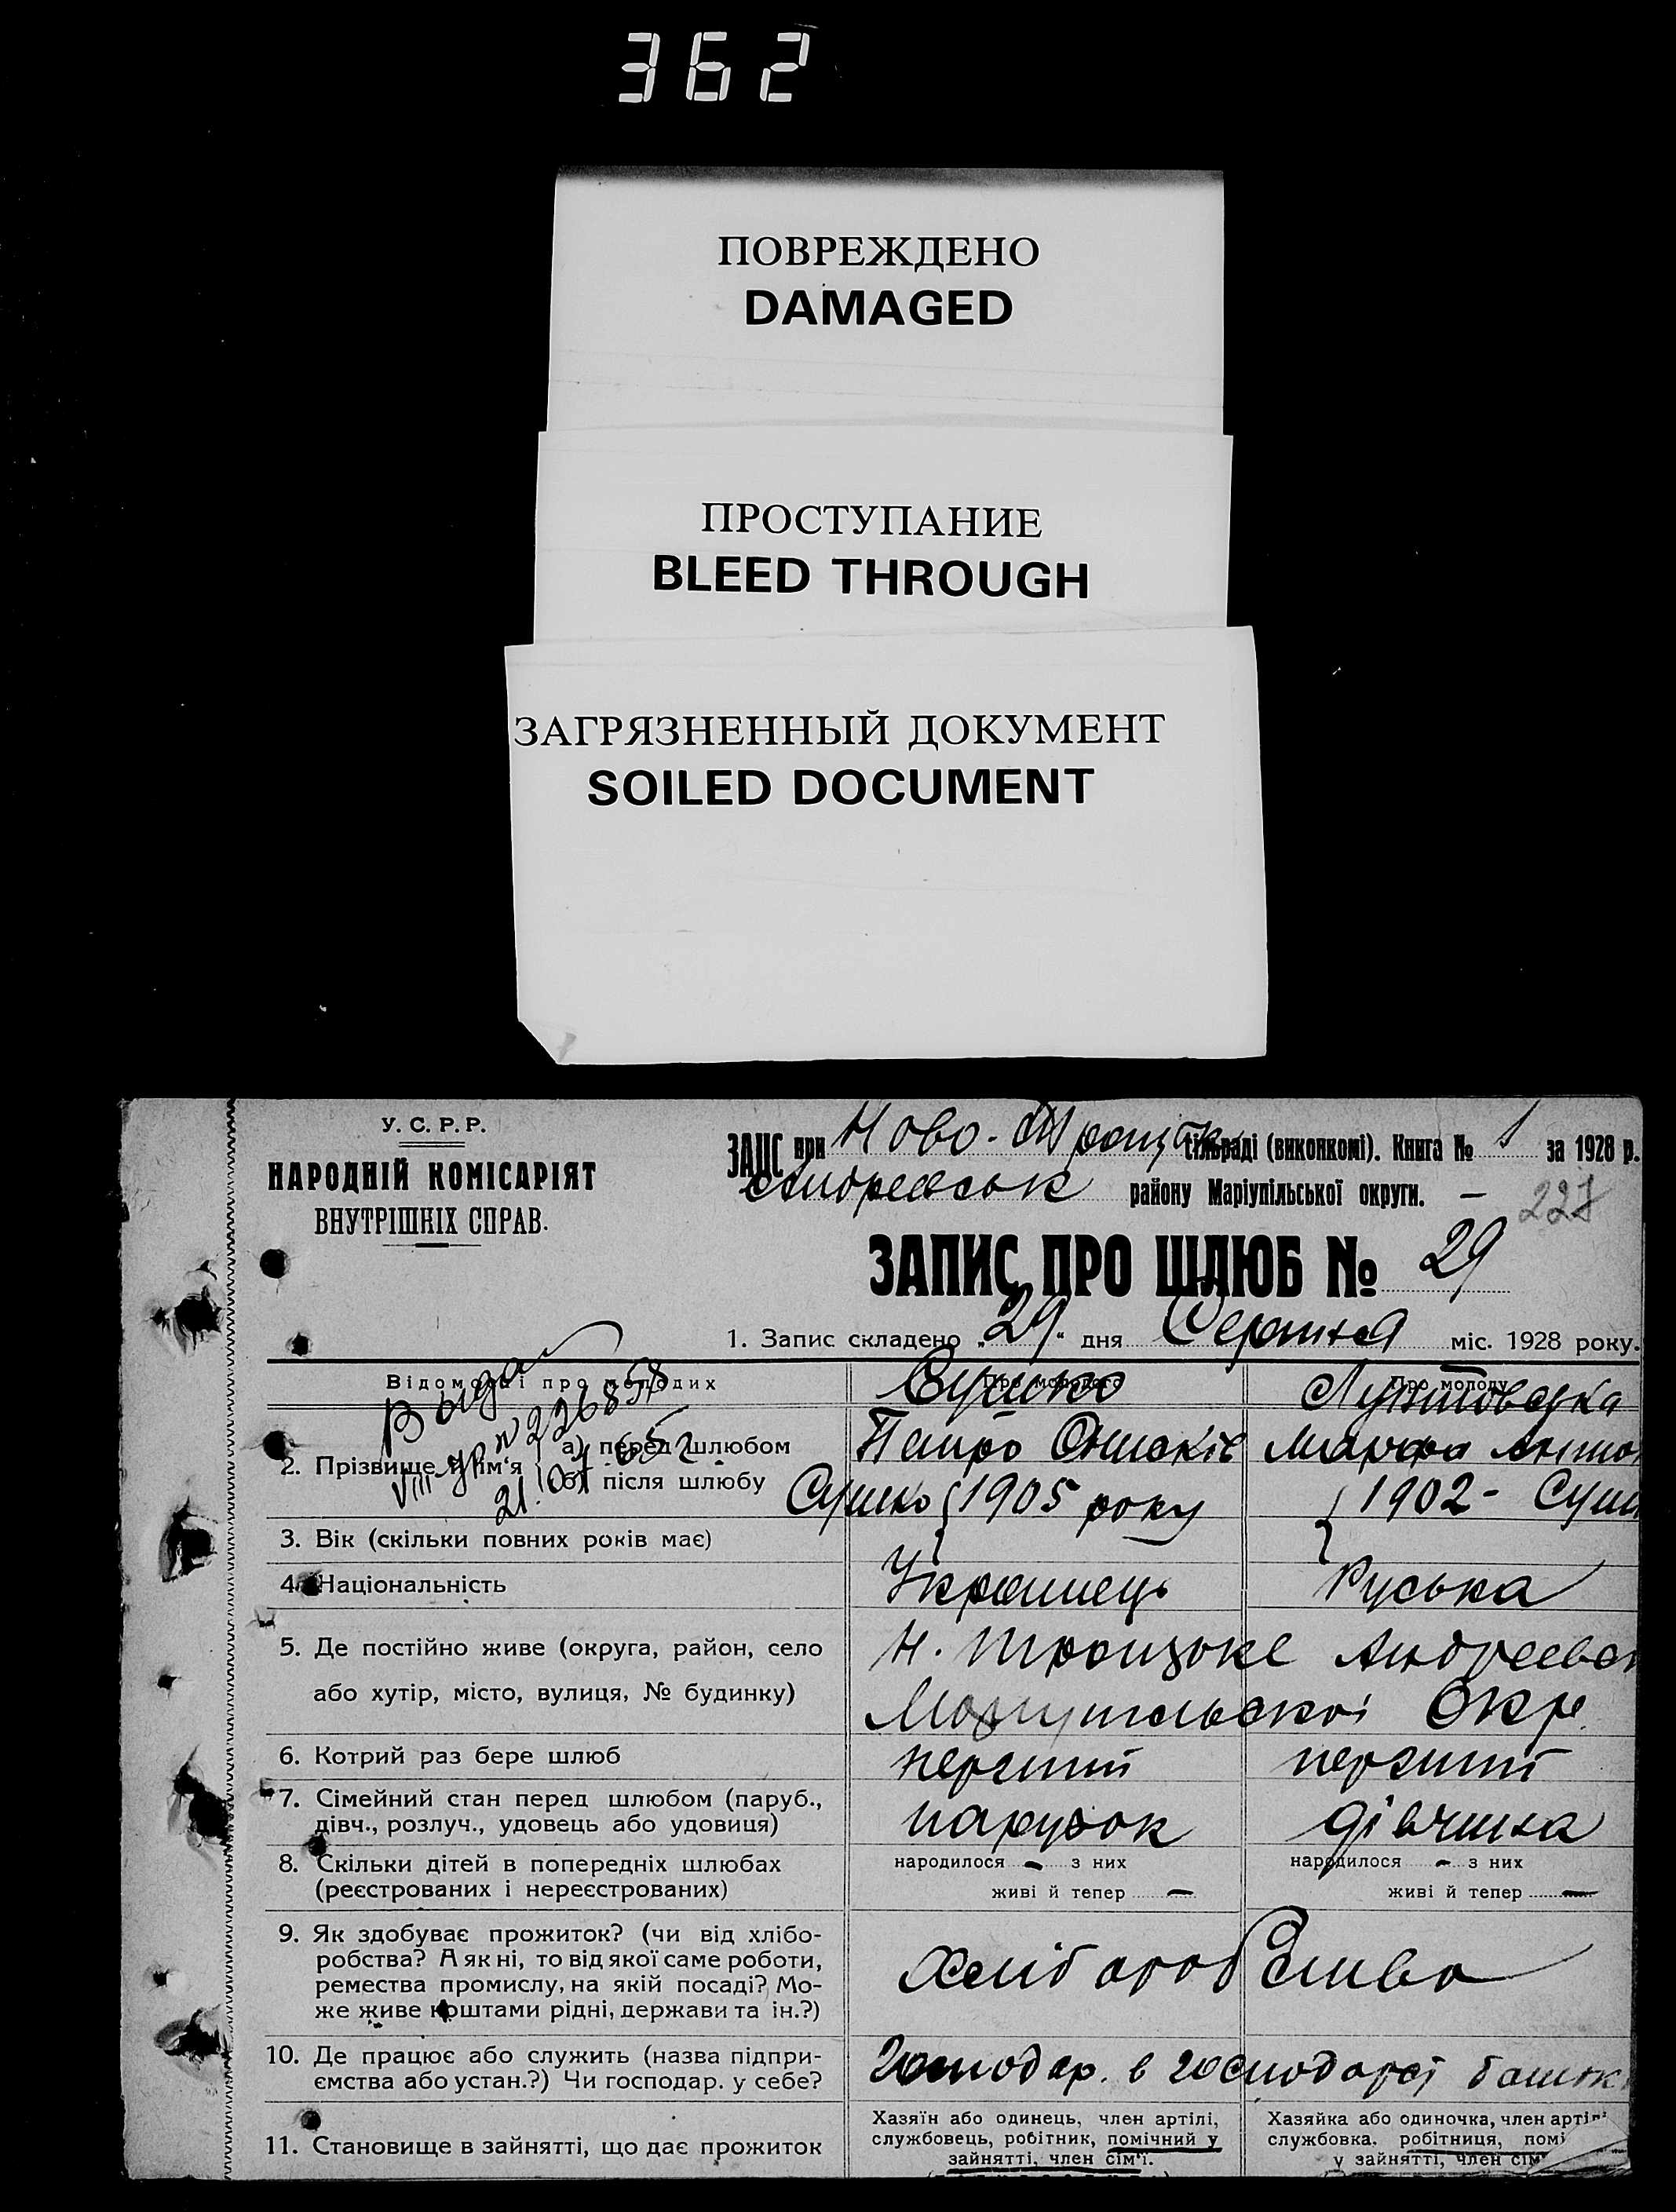 362
ПОВРЕЖДЕНО
DAMAGED
ПРОСТУПАНИЕ
BLEED THROUGH
ЗАГРЯЗНЕННЫЙ ДОКУМЕНТ
SOILED DOCUMENT
У. С. Р. Р.
НАРОДНІЙ КОМІСАРІЯТ
ВНУТРІШНІХ СПРАВ.
ЗАЦС при Ново-Троицк сільраді (виконкомі). Книга № 1 за 1928 р.
Андреевськ району Маріупільської округи. —
227
ЗАПИС ПРО ШЛЮБ № 29
1. Запис складено „29“ дня Серпня міс. 1928 року.
Відомості про молодих
Про молодого
Про молоду
Сушко
2. Прізвище й ім'я { а) перед шлюбом
б) після шлюбу
Петро
Марфа
Сушко { 1905 року
{ 1902 -
VIII
№ 226858
21.
3. Вік (скільки повних років має)
4. Національність
Українець
Руська
5. Де постійно живе (округа, район, село
або хутір, місто, вулиця, № будинку)
Н. Троицьке Андреевськ
Маріупільскої Окр.
6. Котрий раз бере шлюб
перший
перший
7. Сімейний стан перед шлюбом (паруб.,
дівч., розлуч., удовець або удовиця)
парубок
дівчина
8. Скільки дітей в попередніх шлюбах
(реєстрованих і нереєстрованих)
народилося - з них
живі й тепер —
народилося - з них
живі й тепер —
9. Як здобуває прожиток? (чи від хлібо-
робства? А як ні, то від якої саме роботи,
ремества промислу, на якій посаді? Мо-
же живе коштами рідні, держави та ін.?)
Хліборобство
10. Де працює або служить (назва підпри-
ємства або устан.?) Чи господар. у себе?
Господар. в господарст батьк
11. Становище в зайнятті, що дає прожиток
Хазяїн або одинець, член артілі,
службовець, робітник, помічний у
зайнятті, член сім'ї.
Хазяйка або одиночка, член артілі
службовка, робітниця, помі
у зайнятті, член сім'